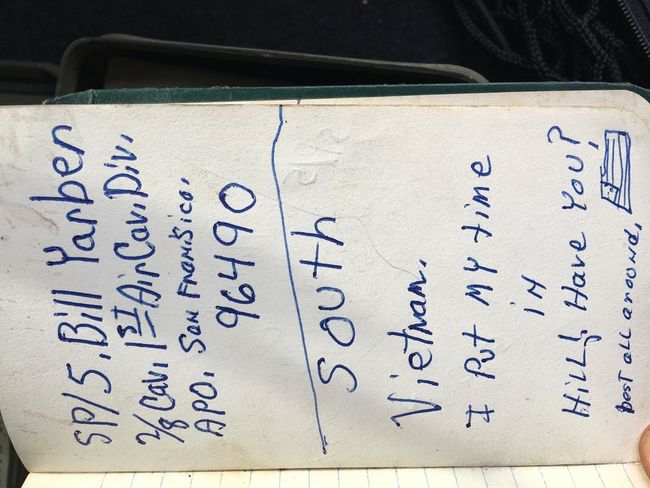 SP/5. Bill Yarber
2/8 Cav. 1ST Air Cav. Div.
APO. San Fransico.
96490
South
Vietnam.
I Put MY time
in
HiLL! Have You?
best all around.